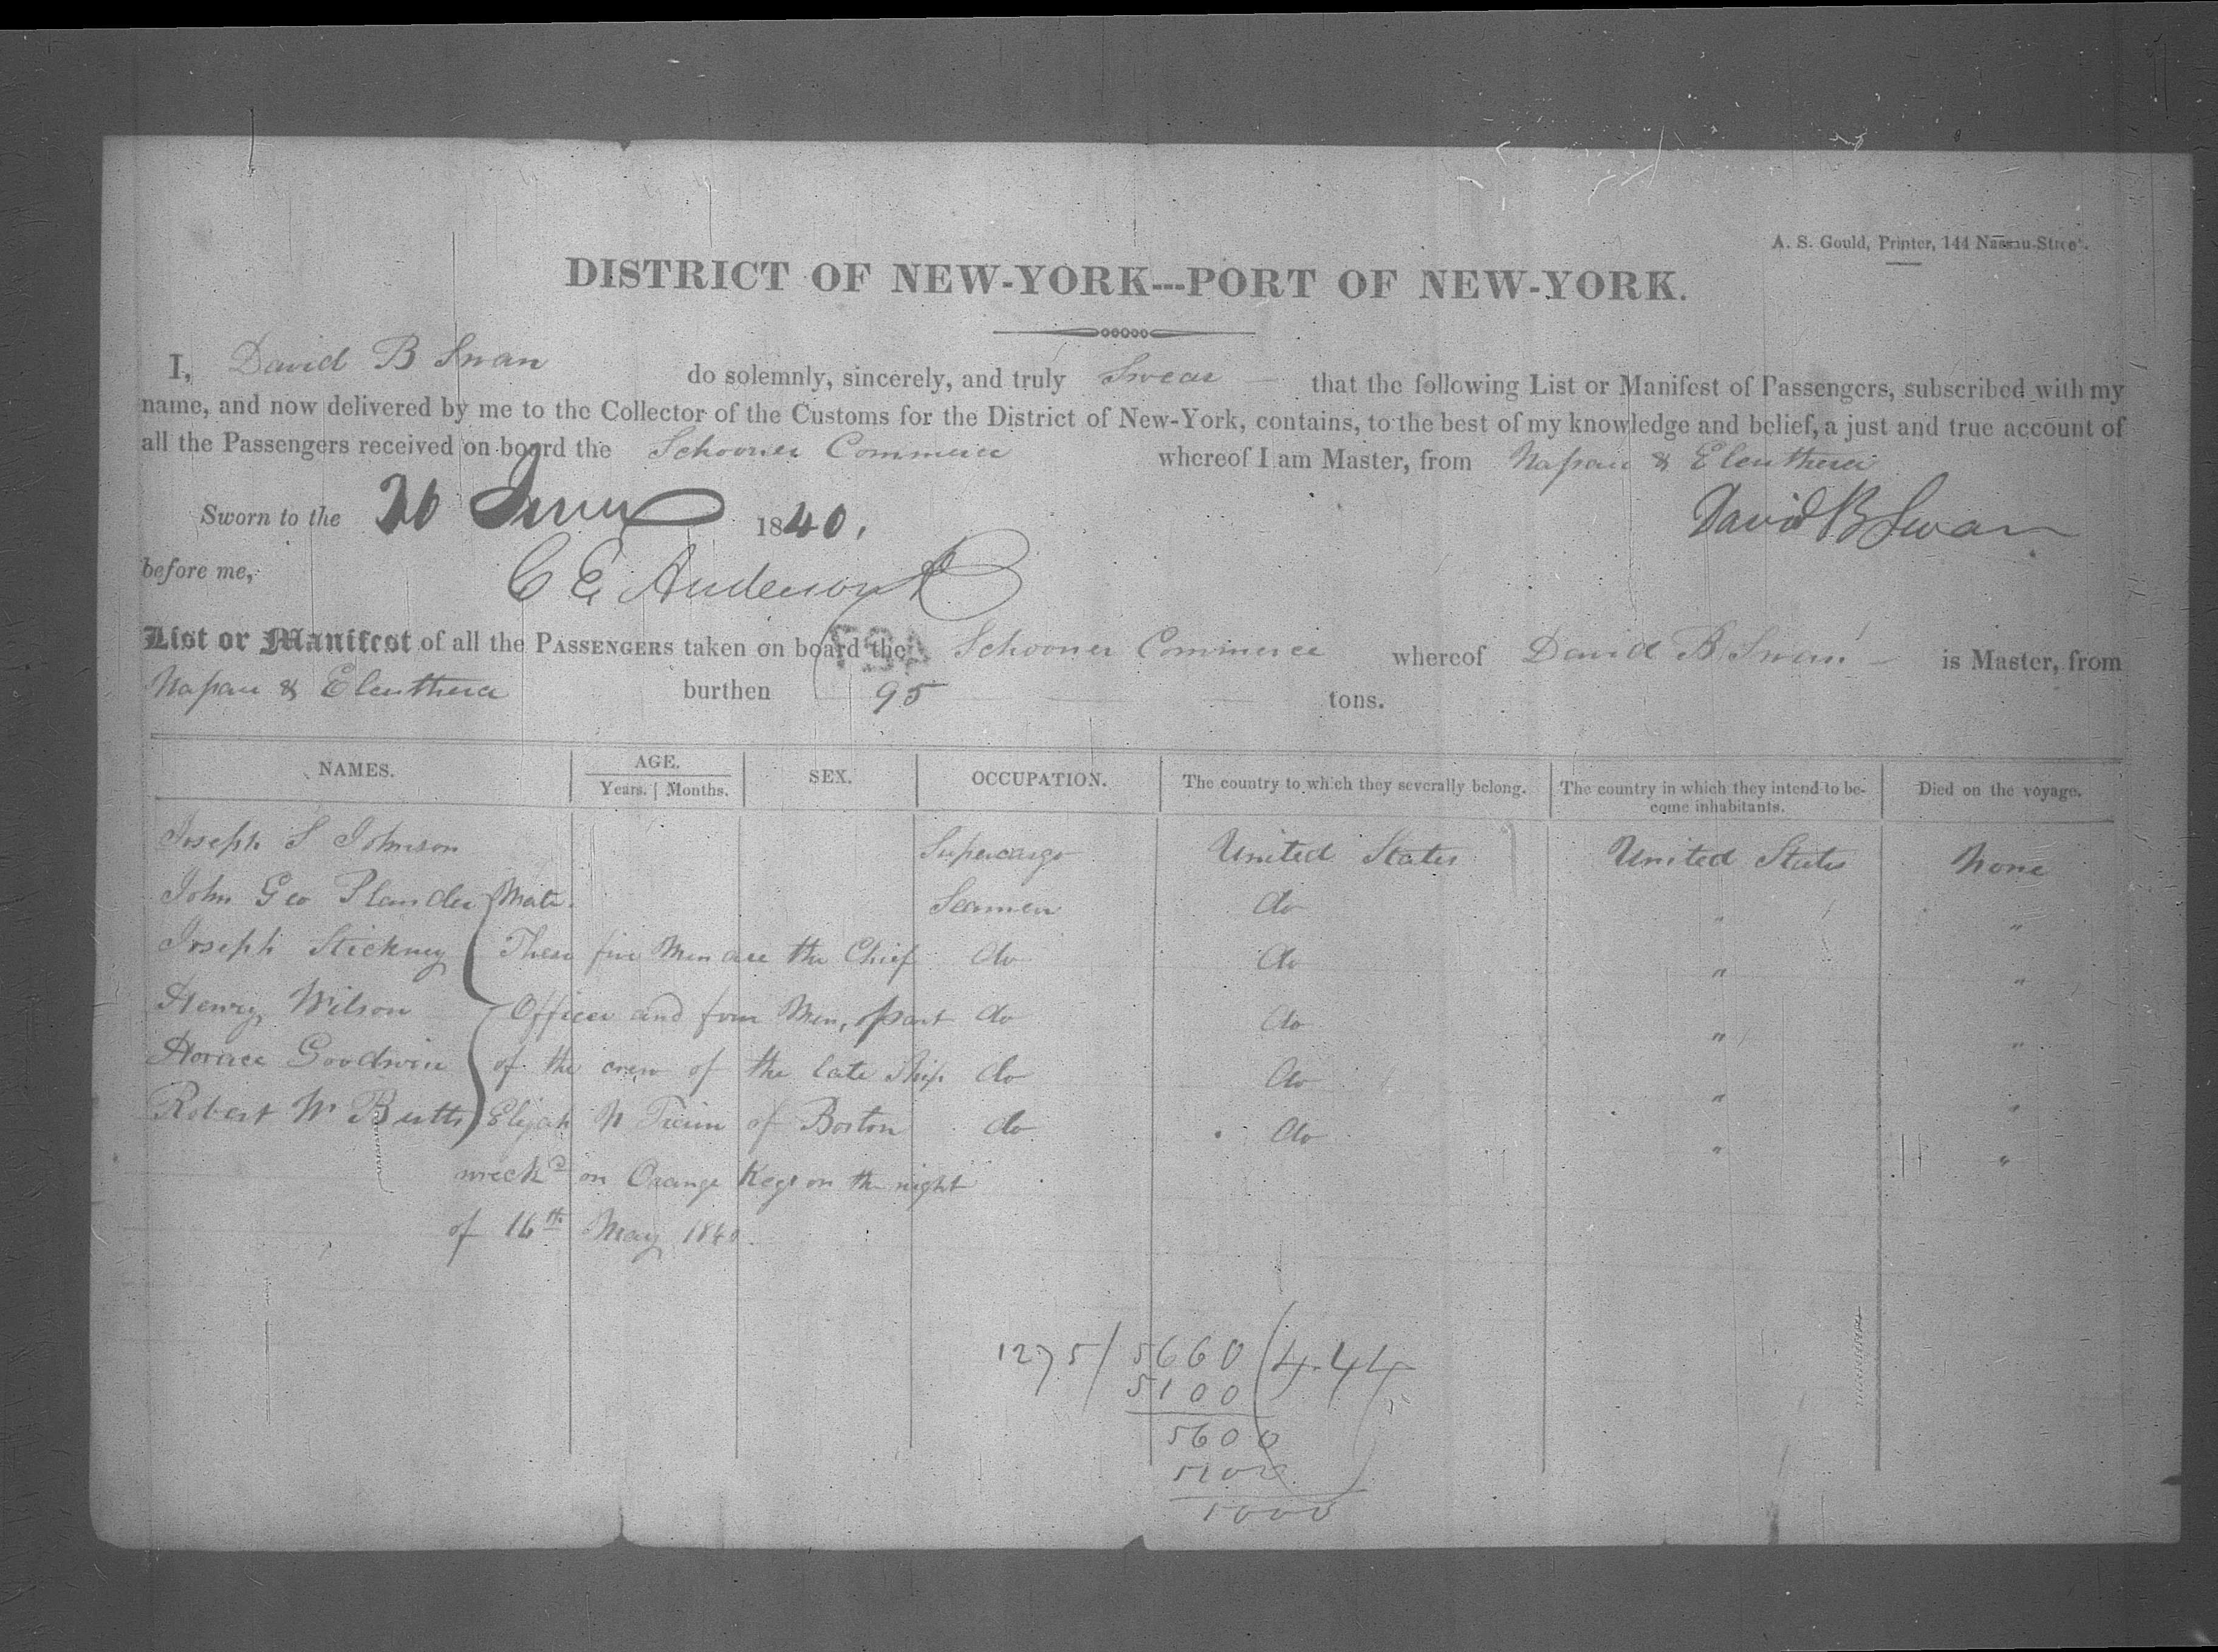 A. S. Gould, Printer, 144 Nassau-Street.
DISTRICT OF NEW-YORK---PORT OF NEW-YORK.
I, David B Swan do solemnly, sincerely, and truly Swear that the following List or Manifest of Passengers, subscribed with my
name, and now delivered by me to the Collector of the Customs for the District of New-York, contains, to the best of my knowledge and belief, a just and true account of
all the Passengers received on board the Schooner Commerce whereof I am Master, from Nassau & Eleuthera
Sworn to the 20 June 1840. David B Swan
before me, C E Anderson
List or Manifest of all the PASSENGERS taken on board the Schooner Commerce whereof David B Swan is Master, from
Nassau & Eleuthera burthen 95 tons.
NAMES. AGE. SEX. OCCUPATION. The country to which they severally belong. The country in which they intend to be- Died on the voyage.
Years. Months. come inhabitants.
Joseph S Johnson Supercargo United States United States None
John Geo Mate Seamen do " "
Joseph Stickney These five Men are the Chief do do " "
Henry Wilson Officer and four Men, part do do " "
Horace Goodwin of the crew of the late Ship do do " "
Robert W Butts Elijah of Boston do do " "
wreckd on Orange Keys on the night
of 16th May 1840
1275 / 5660 ( 4.44
5100
5600
5100
5000